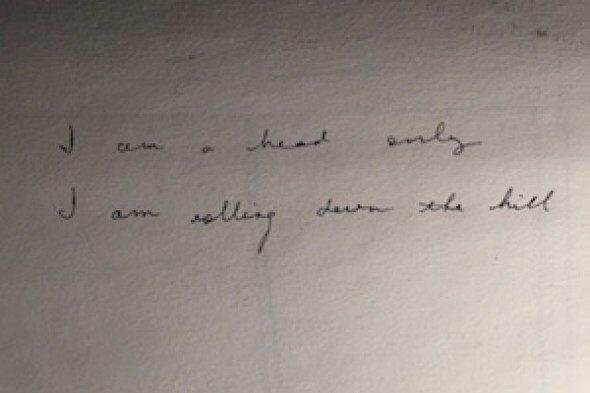 I am a head only
I am rolling down the hill